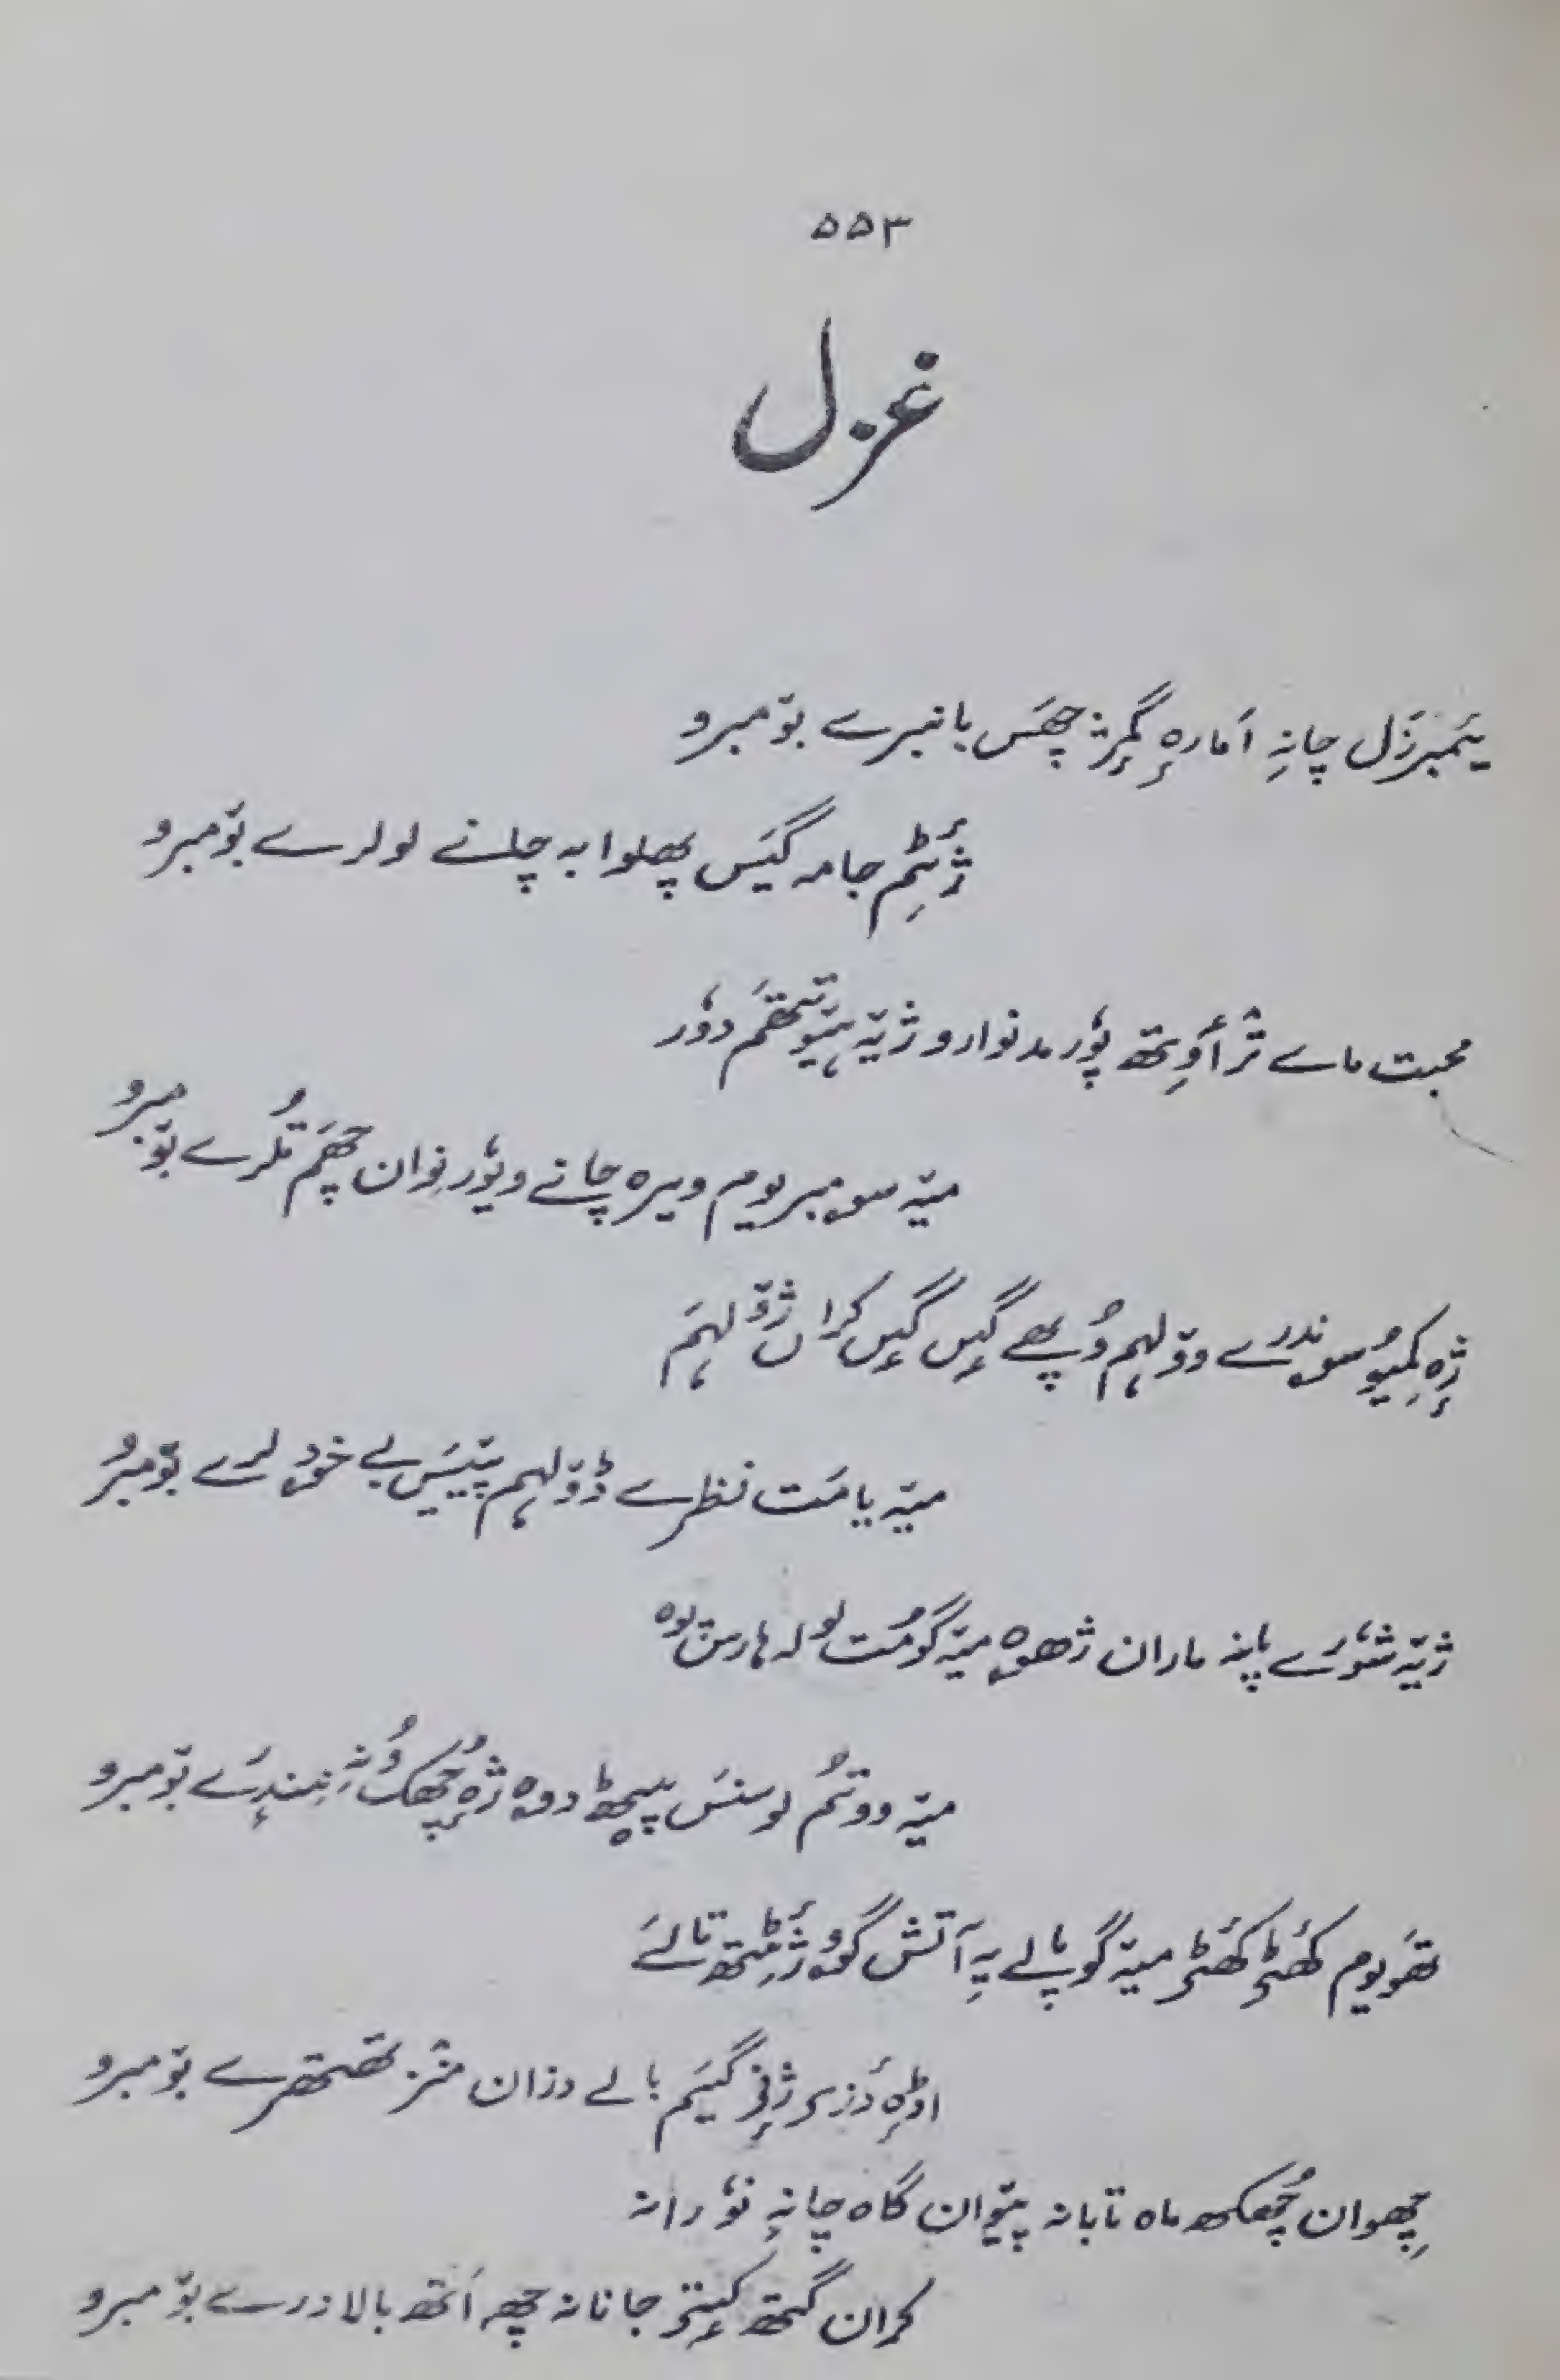 ۵۵۳
غزل
یَمبرزَل چانہِ اَمارہٕ گمٕژ چھَس بانبرے بوٚمبرو
ژٔٹِم جامہ گیَس پھلوا بہ چانے لولرے بوٚمبرو
محبت ماے ترٛأوِتھ پوٗر مدنوارو ژیٚہ ہیوٚتتھم دوٗر
میٚہ سومبریوم ویرہ چانے ویوٗر نِوان چھَم تُلرے بوٚمبرو
ژٕہ کمیُو سوندرے ووٚلہم وُچھے گیس گیس کران ژوٚلہم
میٚہ یا مَت نظرے ڈوٚلہم پیٚیَس بے خود لرے بوٚمبرو
ژیٚہ شوٗرے پانہ ماران ژھوہ میٚہ گومُت لولہ ہارس پوہ
میٚہ ووٚتمُ لوسنَس پیٚٹھ دوہ ژٕہ چھُکھ وُنہِ نیندرے بوٚمبرو
تھَویوم کھٔٹۍ کھٔٹۍ میٚہ گوپالے یہِ آتش گوو ژٔٹِتھ تالے
اڈہِ دٔزۍ ژٕنۍ گیَم بالے دزان منٛز تھتھرے بوٚمبرو
چھِوان چھُکھ ماہ تابانہ پیٚوان گاہ چانہِ نوٗرانہ
کران گتھ کیٛتۍ جانانہ چھِ اَتھ بالا درے بوٚمبرو